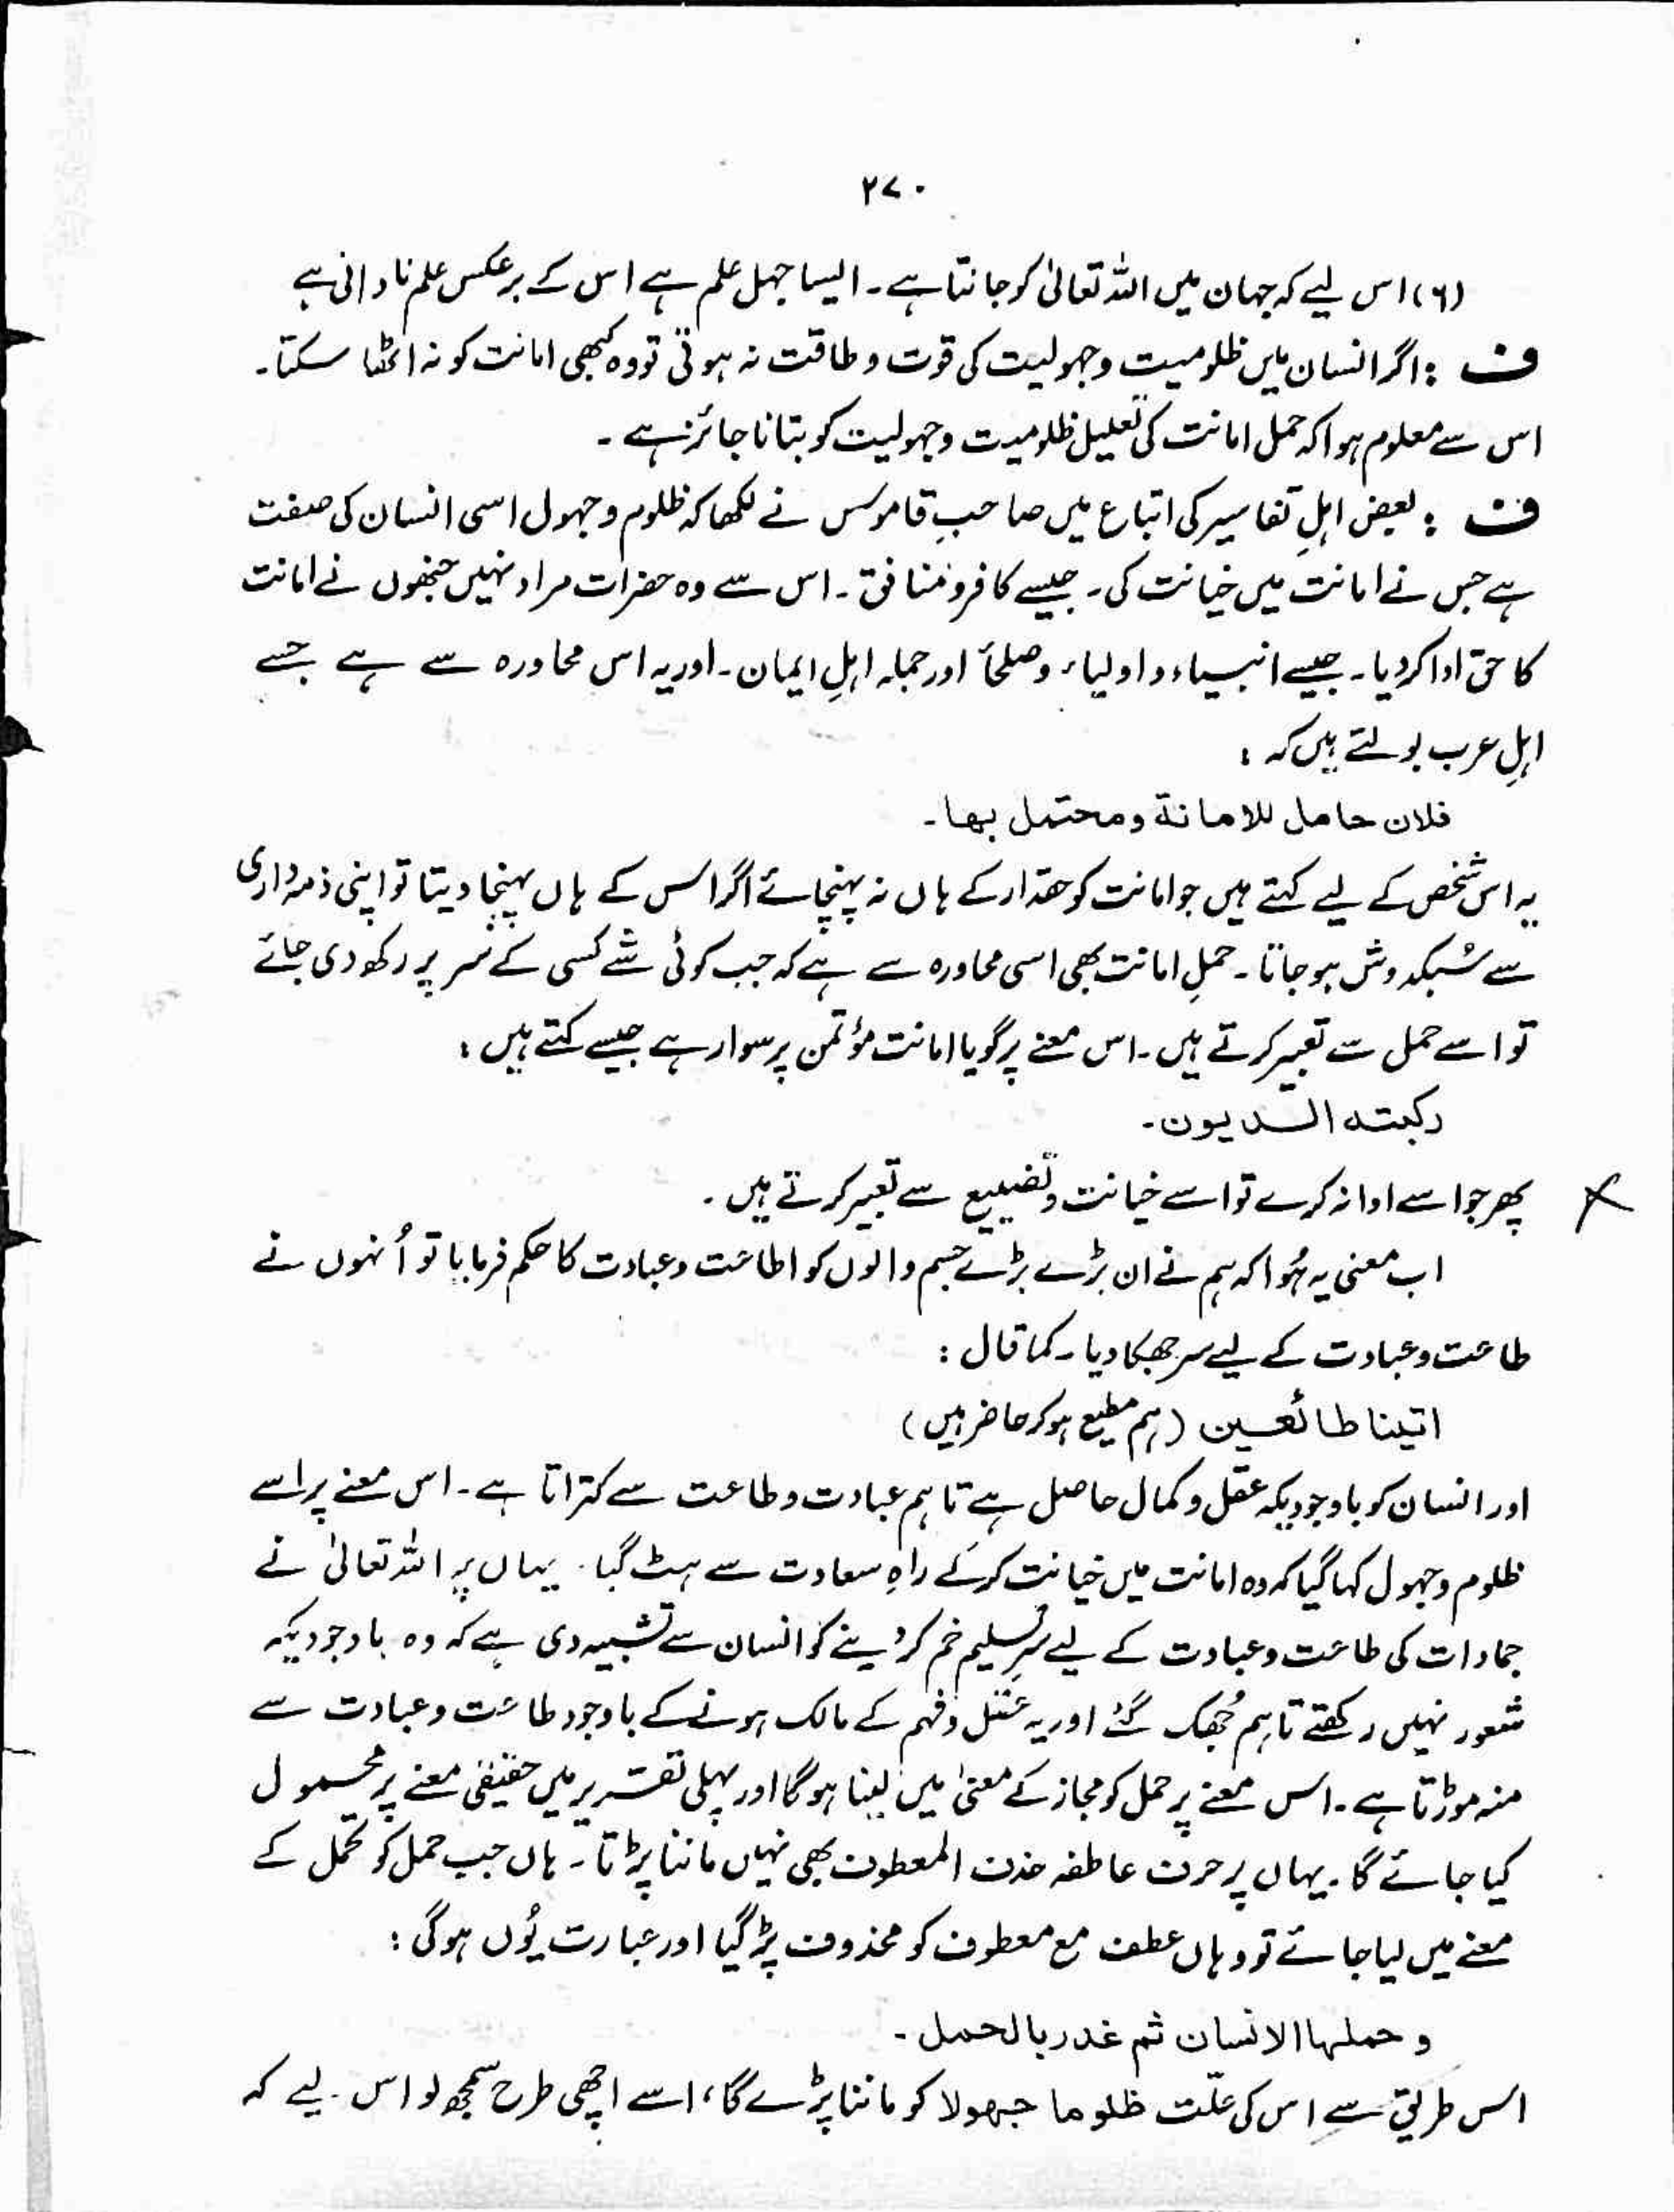 ۲۷۰
(۶) اس لیے کہ جہان میں اللہ تعالیٰ کو جانتا ہے۔ ایسا جہل علم ہے اس کے برعکس علم نادانی ہے
ف : اگر انسان میں ظلومیت وجہولیت کی قوت و طاقت نہ ہوتی تو وہ کبھی امانت کو نہ اٹھا سکتا۔
اس سے معلوم ہوا کہ حمل امانت کی تعلیل ظلومیت وجہولیت کو بتانا جائز ہے۔
ف : بعض اہلِ تفاسیر کی اتباع میں صاحبِ قاموس نے لکھا کہ ظلوم وجہول اسی انسان کی صفت
ہے جس نے امانت میں خیانت کی۔ جیسے کافر و منافق۔ اس سے وہ حضرات مراد نہیں جنھوں نے امانت
کا حق ادا کر دیا۔ جیسے انبیاء و اولیاء و صلحاً اور جملہ اہلِ ایمان۔ اور یہ اس محاورہ سے ہے جسے
اہلِ عرب بولتے ہیں کہ :
فلان حامل للامانة ومحتمل بها۔
یہ اس شخص کے لیے کہتے ہیں جو امانت کو حقدار کے ہاں نہ پہنچائے اگر اس کے ہاں پہنچا دیتا تو اپنی ذمہ داری
سے سُبکدوش ہو جاتا۔ حملِ امانت بھی اسی محاورہ سے ہے کہ جب کوئی شے کسی کے سر پر رکھ دی جائے
تو اسے حمل سے تعبیر کرتے ہیں۔ اس معنے پر گویا امانت مؤتمن پر سوار ہے جیسے کہتے ہیں :
رکبته الدیون۔
پھر جو اسے ادا نہ کرے تو اسے خیانت وتضییع سے تعبیر کرتے ہیں۔
اب معنی یہ ہُوا کہ ہم نے ان بڑے بڑے جسم والوں کو اطاعت وعبادت کا حکم فرمایا تو اُنہوں نے
طاعت وعبادت کے لیے سر جھکا دیا۔ کما قال :
اتینا طائعین (ہم مطیع ہو کر حاضر ہیں)
اور انسان کو باوجودیکہ عقل و کمال حاصل ہے تاہم عبادت و طاعت سے کتراتا ہے۔ اس معنے پر اسے
ظلوم وجہول کہا گیا کہ وہ امانت میں خیانت کرکے راہِ سعادت سے ہٹ گیا۔ یہاں پر اللہ تعالیٰ نے
جمادات کی طاعت وعبادت کے لیے سرِ تسلیم خم کر دینے کو انسان سے تشبیہ دی ہے کہ وہ باوجودیکہ
شعور نہیں رکھتے تاہم جُھک گئے اور یہ عقل و فہم کے مالک ہونے کے باوجود طاعت وعبادت سے
منہ موڑتا ہے۔ اس معنے پر حمل کو مجاز کے معنیٰ میں لینا ہوگا اور پہلی تقریر میں حقیقی معنے پر محمول
کیا جائے گا۔ یہاں پر حرف عاطفہ حذف المعطوف بھی نہیں ماننا پڑتا۔ ہاں جب حمل کو تحمل کے
معنے میں لیا جائے تو وہاں عطف مع معطوف کو محذوف پڑ گیا اور عبارت یُوں ہوگی :
و حملها الانسان ثم غدر بالحمل۔
اس طریق سے اس کی علّت ظلوما جهولا کو ماننا پڑے گا، اسے اچھی طرح سمجھ لو اس لیے کہ